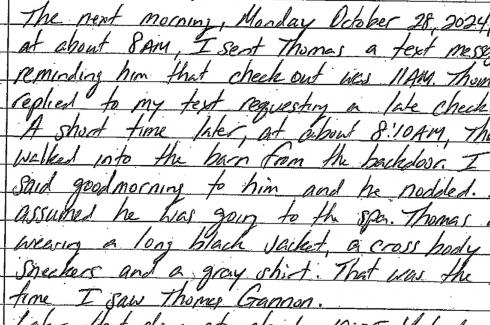 The next morning, Monday October 28, 2024,
at about 8AM, I sent Thomas a text
reminding him that check out was 11AM.
replied to my text requesting a late check
A short time later, at about 8:10AM,
walked into the barn from the backdoor. I
said goodmorning to him and he nodded.
assumed he was going to the spa. Thomas
wearing a long black jacket, a cross body
sneekers and a gray shirt. That was the
time I saw Thomas Gannon.